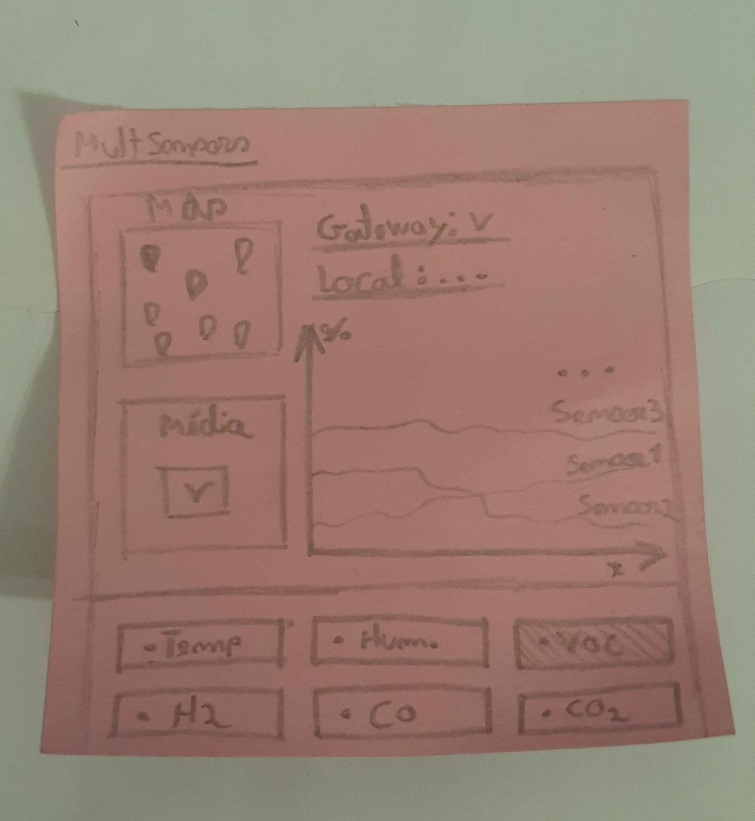 Mult Sensors
Map
Gateway: v
Local : ...
%
...
Sensor 3
Sensor 1
Sensor 2
Média
v
• Temp
• Hum.
• VOC
• H2
• CO
• CO2